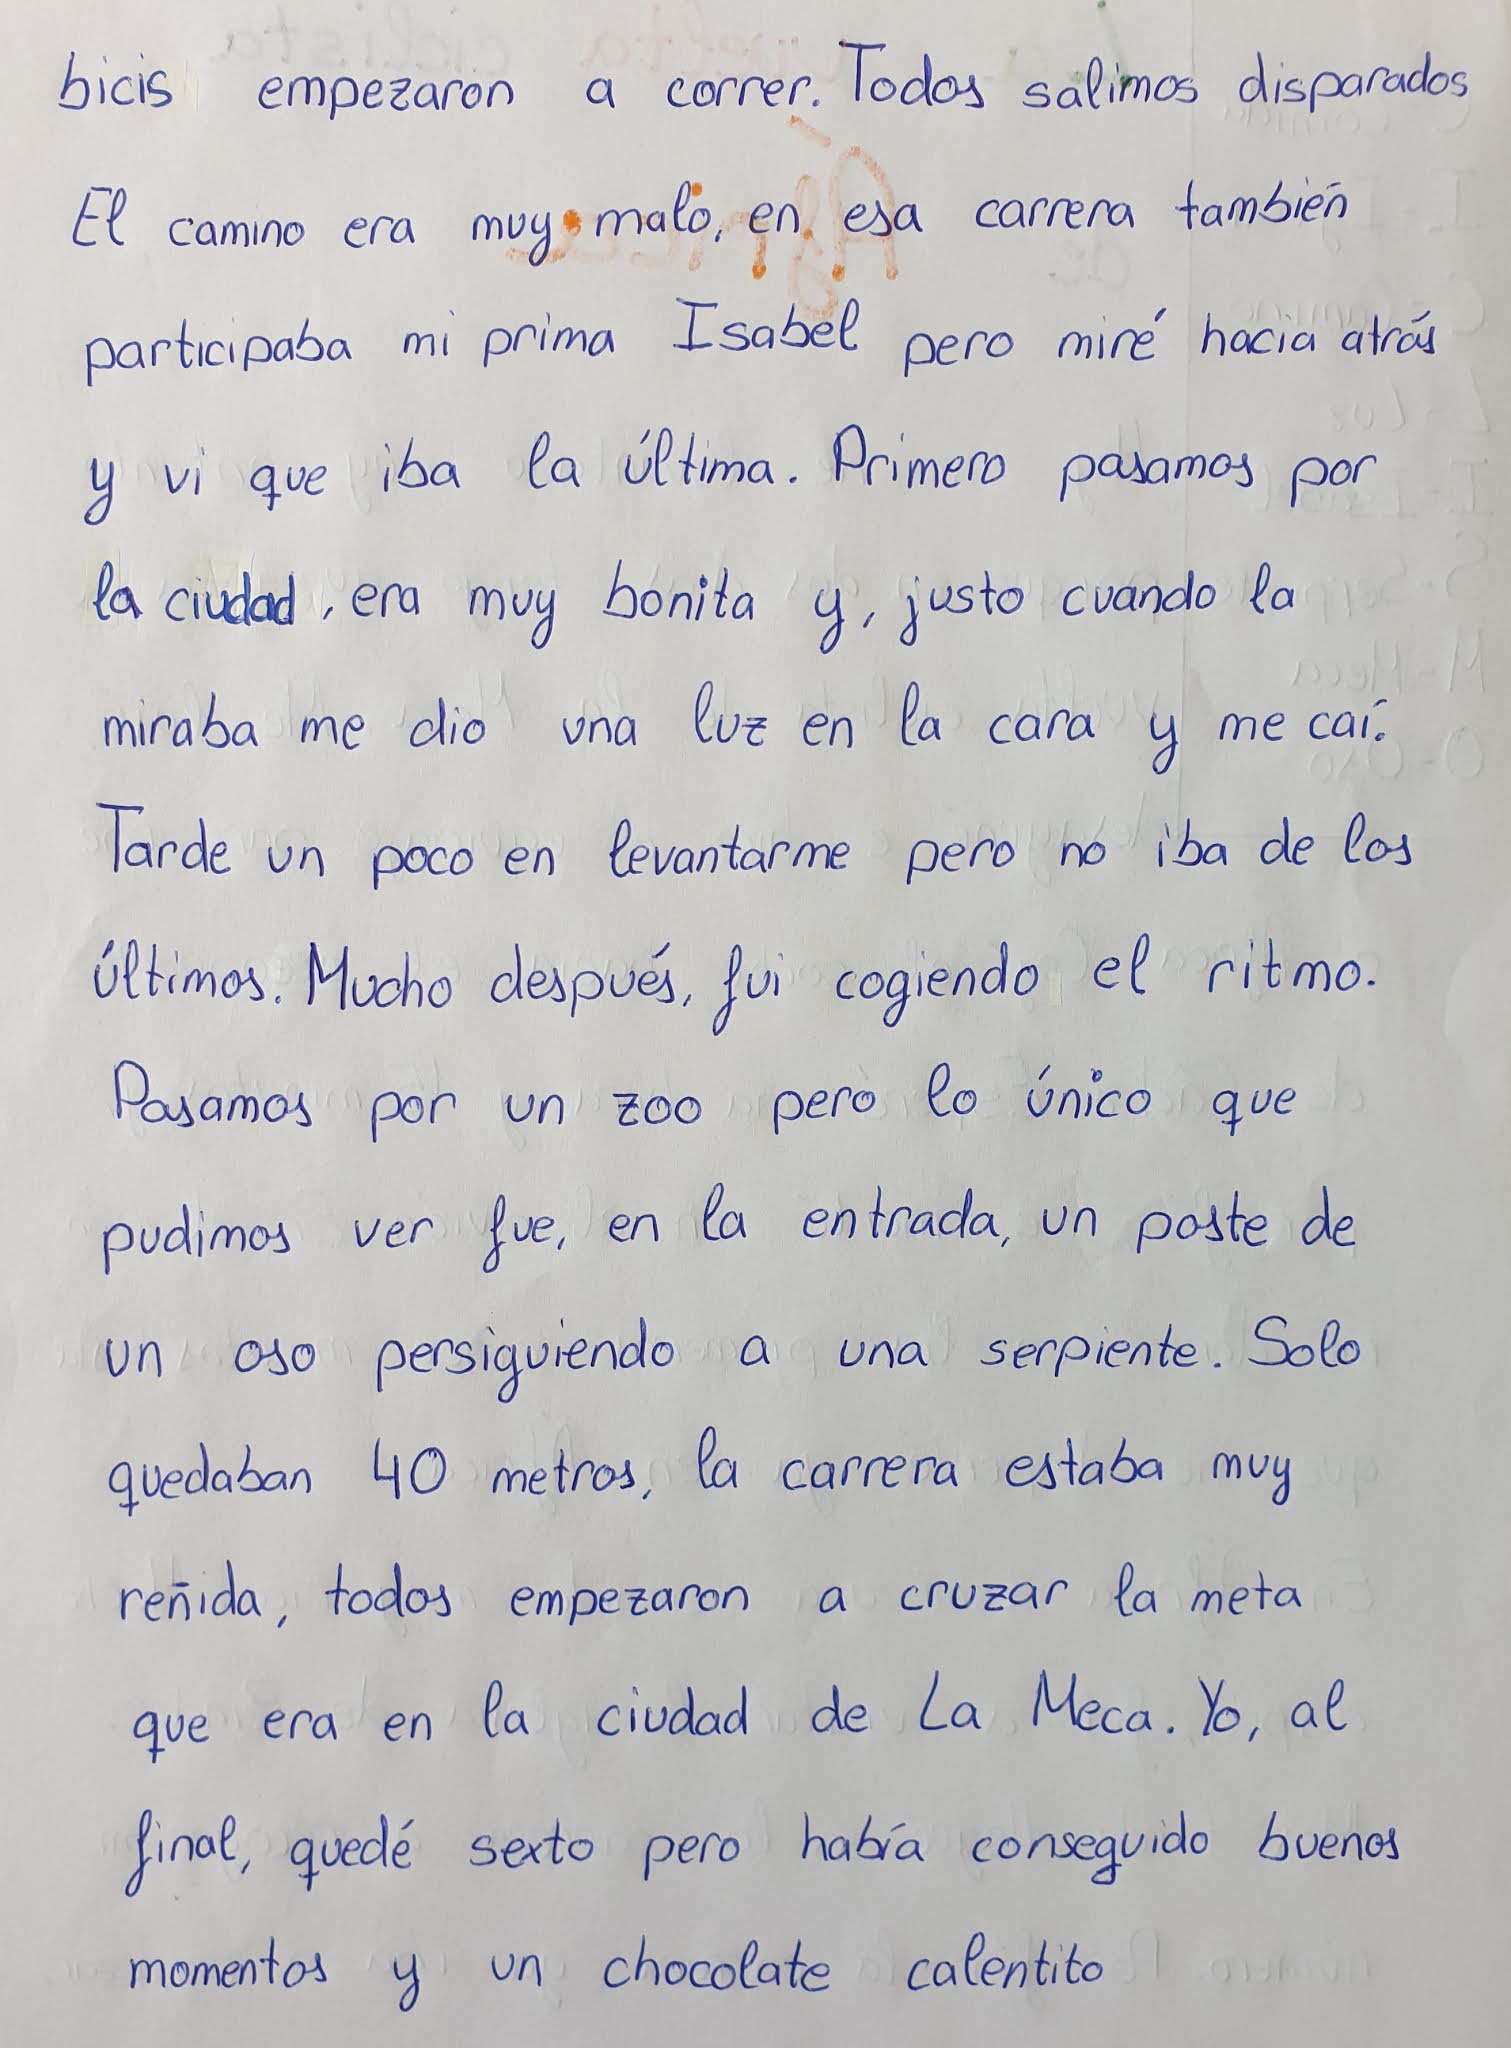 bicis empezaron a correr. Todos salimos disparados
El camino era muy malo, en esa carrera también
participaba mi prima Isabel pero miré hacia atrás
y vi que iba la última. Primero pasamos por
la ciudad, era muy bonita y, justo cuando la
miraba me dio una luz en la cara y me caí.
Tarde un poco en levantarme pero no iba de los
últimos. Mucho después, fui cogiendo el ritmo.
Pasamos por un zoo pero lo único que
pudimos ver fue, en la entrada, un poste de
un oso persiguiendo a una serpiente. Solo
quedaban 40 metros, la carrera estaba muy
reñida, todos empezaron a cruzar la meta
que era en la ciudad de La Meca. Yo, al
final, quedé sexto pero había conseguido buenos
momentos y un chocolate calentito